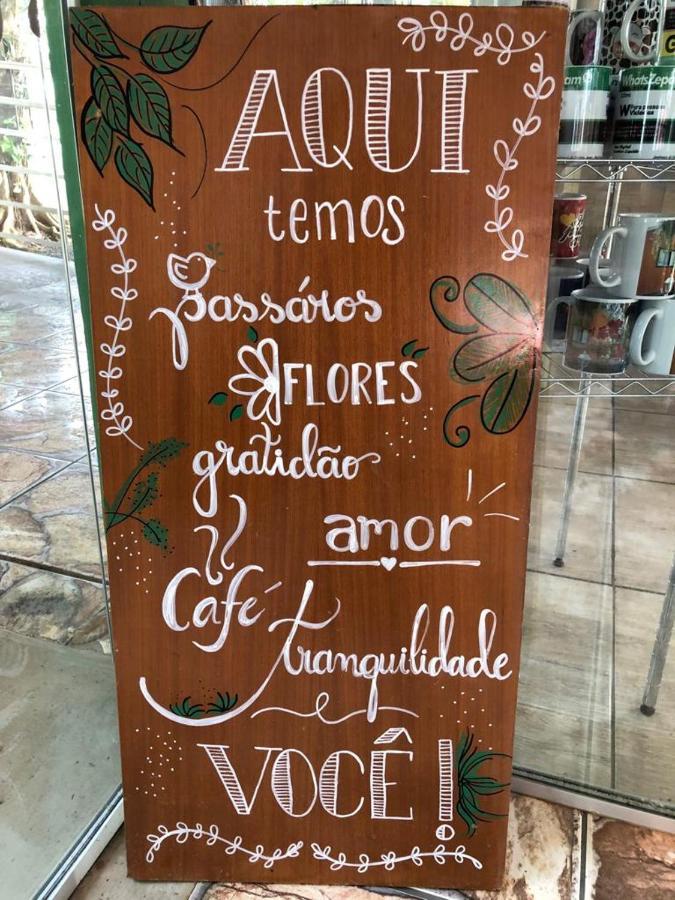 AQUI
temos
Passáros
FLORES
gratidão
amor
Café
tranquilidade
VOCÊ!
WhatsZepo